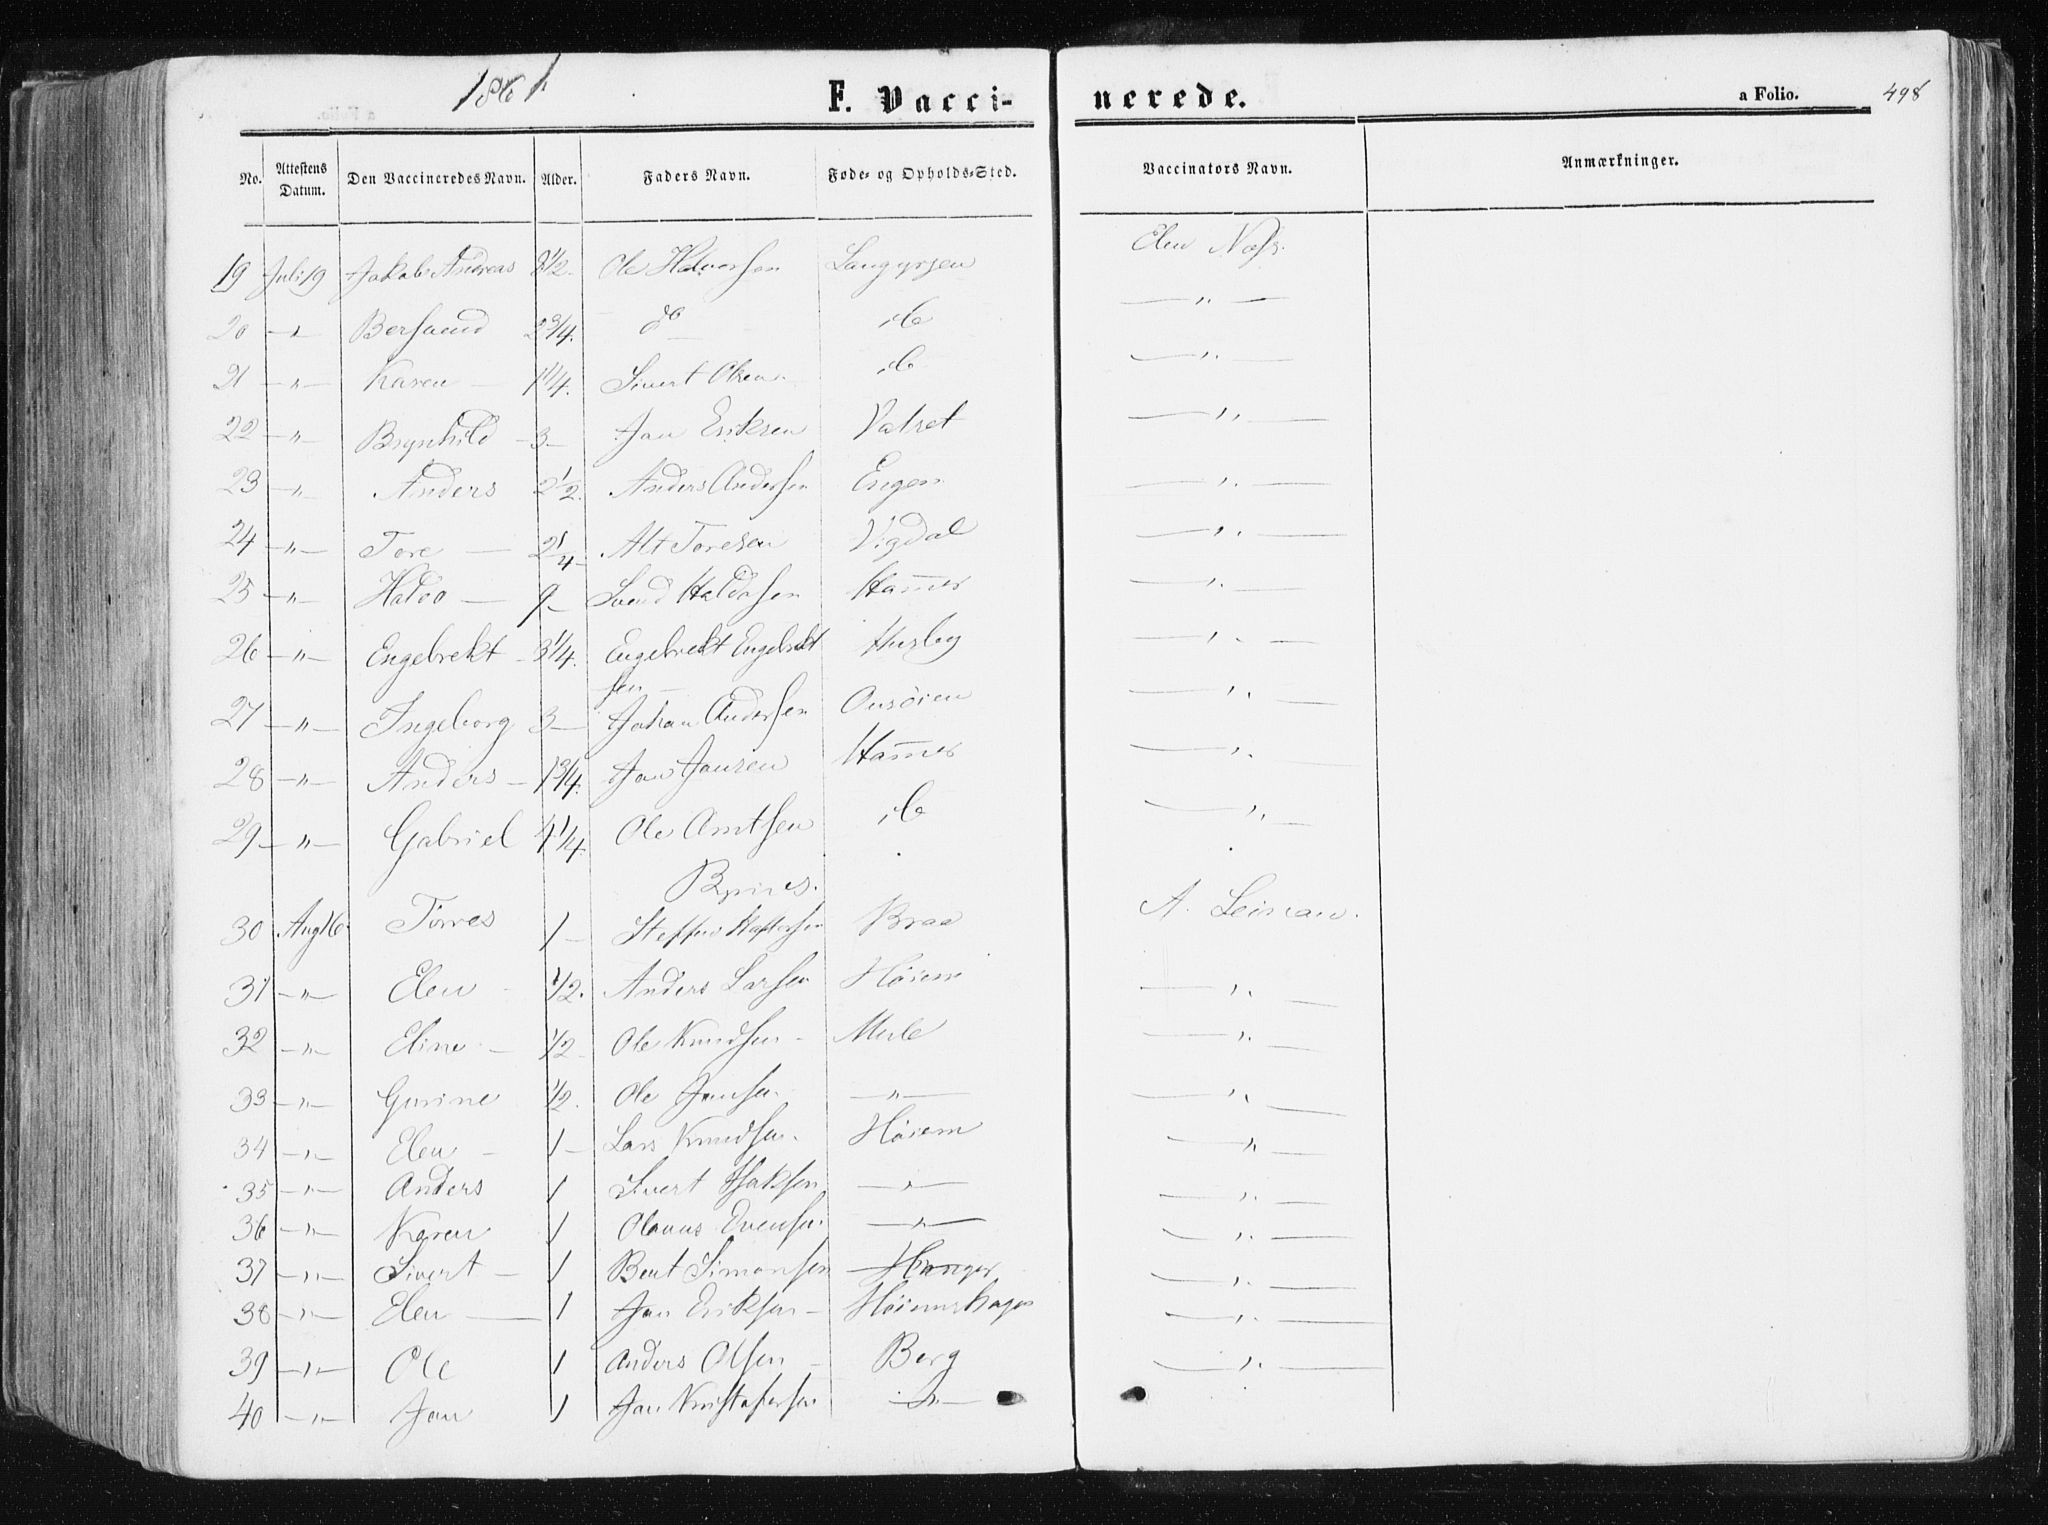 1861 F. Vacci- nerede. a Folio. 498
No. Attestens Datum. Den Vaccineredes Navn. Alder. Faders Navn. Føde- og Opholds-Sted. Vaccinators Navn. Anmærkninger.
19 Juli 19 Jakob Andreas 8 1/2. Ole Halvorsen Langørjen Elen Næss.
20 — " — 2 3/4. do ib — " —
21 — " — Karen — 1 1/4. Sivert Olsen ib — " —
22 — " — Brynhild — 3 — Jon Eriksen Valset — " —
23 — " — Anders 2 1/2. Anders Andersen Engen — " —
24 — " — Tore — 2 1/4 — Alt Toresen Vigdal — " —
25 — " — Haldo — 9 — Svend Haldosen Ham̅er — " —
26 — " — Engebrekt — 3 1/4. Engebrekt Engebrekt Husby — " —
sen —
27 — " — Ingeborg 3 — Johan Andersen Onsøien — " —
28 — " — Anders — 1 3/4. Jon Jonsen Ham̅er — " —
29 — " — Gabriel 4 1/4. Ole Arntsen ib — " —
Bynes.
30 Aug 16 Torres 1 — Steffen Braa A. Leiman.
31 — " — Elen 1/2. Anders Larsen Høiem — " —
32 — " — Eline — 1/2 Ole Knudsen — Mule — " —
33 — " — Gurine 1/2. Ole Jonsen — " — — " —
34 — " — Elen — 1 — Lars Knudsen. Høiem — " —
35 — " — Anders 1 Sivert Isaksen — " — — " —
36 — " — Karen 1 Olaus Evensen — " — — " —
37 — " — Sivert — 1 Bent Simonsen Hanger — " —
38 — " — Elen — 1 Jon Eriksen — Høiemshagen — " —
39 — " — Ole 1 Anders Olsen — Berg — " —
40 — " — Jon 1 Jon Kristofersen — " —